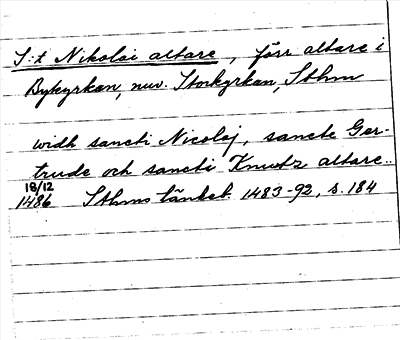 S:t Nikolai altare, förr altare i
Bykyrkan, nuv. Storkyrkan, Sthm
widh sancti Nicolaj, sancte Ger-
trude och sancti Knwtz altare..
18/12
1486 Sthms tänkeb. 1483-92, s. 184